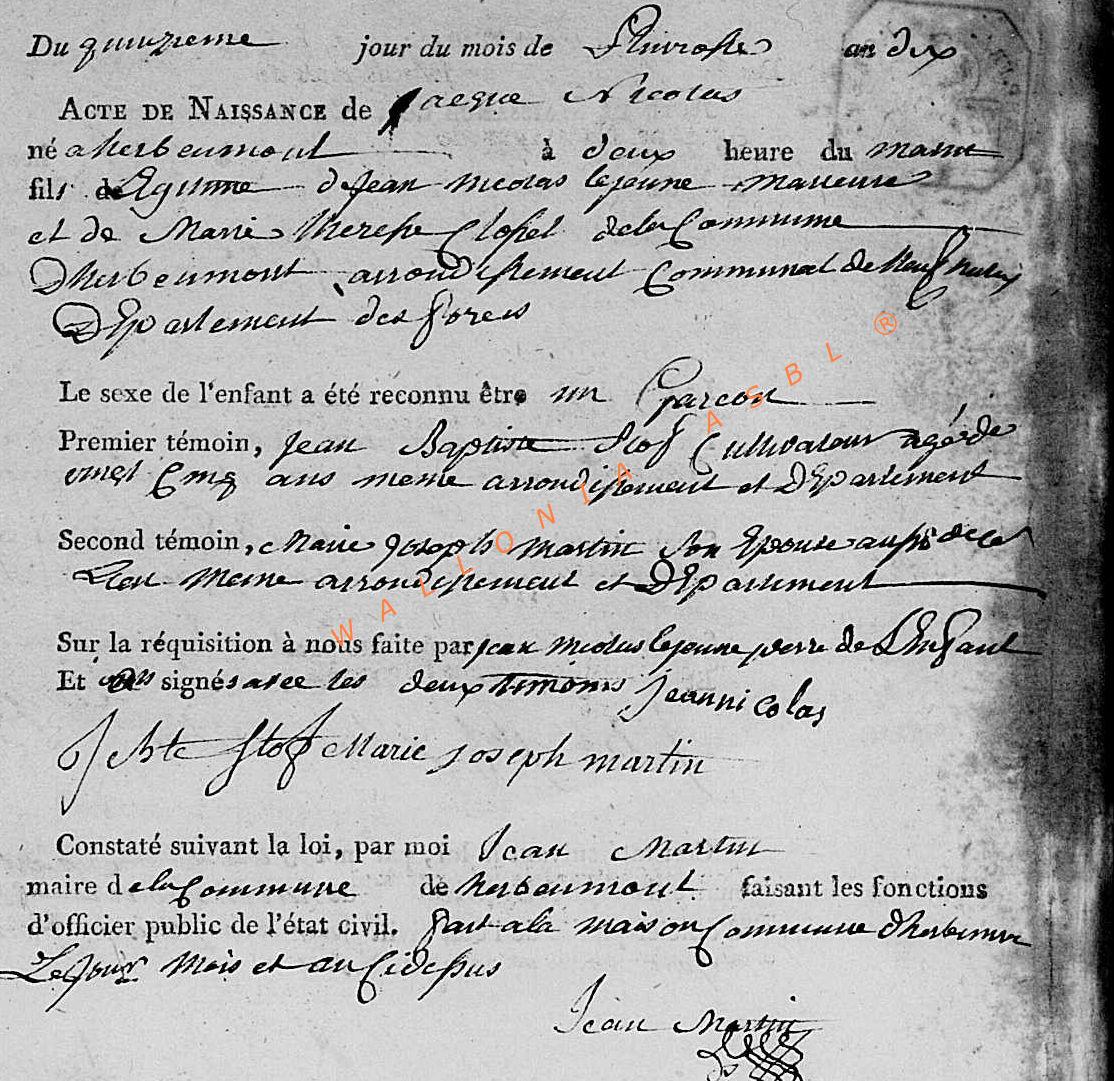 Du quinzieme jour du mois de Pluviose an dix
ACTE DE NAISSANCE de Jacque Nicolas
né a herbeumont à deux heure du matin
fils de Legitime de Jean nicolas lejeune
et de Marie therese Clofet de la Commune
Dherbeumont arrondissement Communal de Neufchateau
Departement des forets
Le sexe de l'enfant a été reconnu être un Garcon
Premier témoin, Jean Baptiste Stof Cultivateur agé de
vingt Cinq ans meme arrondissement et Departement
Second témoin, Marie Joseph martin Son Epouse aussi de ce
Lieu meme arrondissement et Departement
Sur la réquisition à nous faite par jean nicolas lejeune perre de L'Enfant
Et signés avec les deux temoins Jean nicolas
J Bte Stof Marie joseph martin
Constaté suivant la loi, par moi Jean Martin
maire de la Commune de herbeumont faisant les fonctions
d'officier public de l'état civil. fait a la maison Commune d'herbeumont
Le Jour Mois et an Cidesus
Jean Martin
WALLONIA ASBL ®